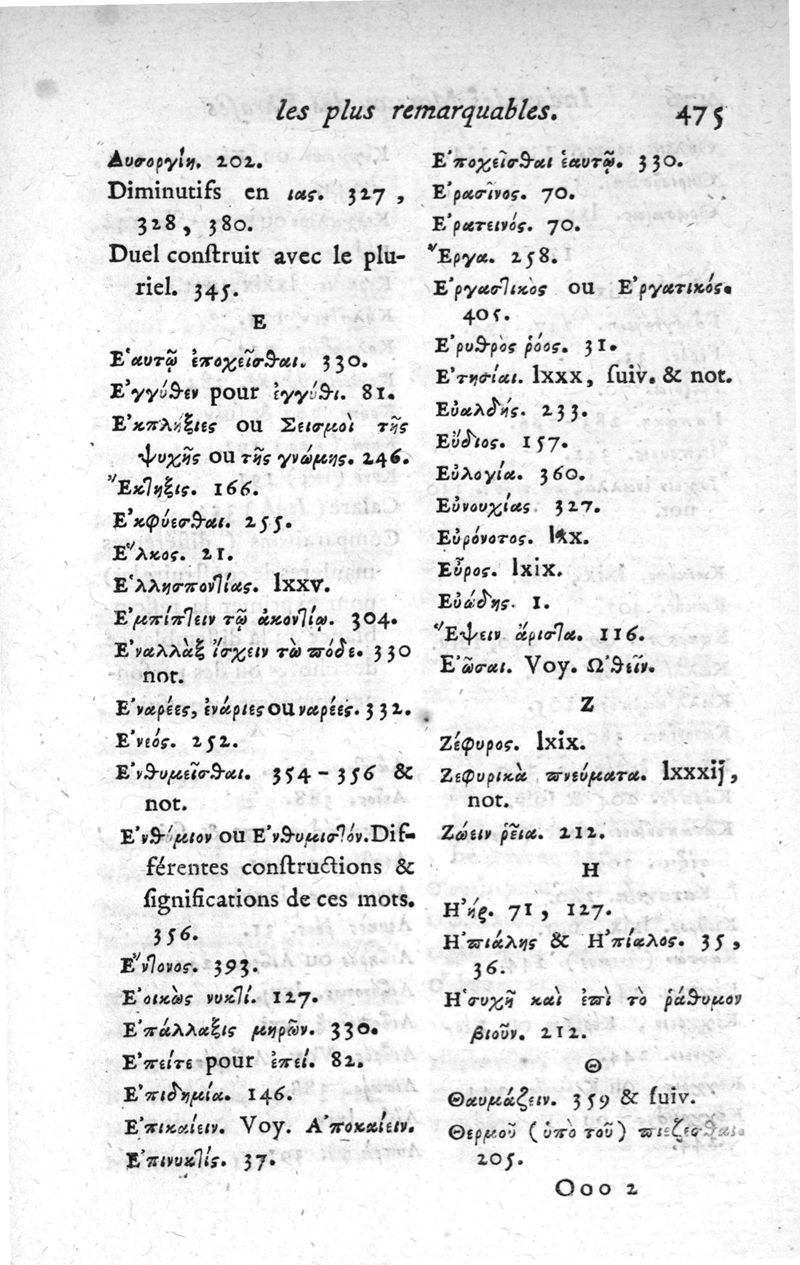 les plus remarquables. 475
Δυσοργίη. 202.
Diminutifs en ιας. 327,
328, 380.
Duel conſtruit avec le plu-
riel. 345.
E
Ἑαυτῷ ἐποχεῖσθαι. 330.
Ἐγγύθεν pour ἐγγύθι. 81.
Ἐκπλήξιες ου Σεισμοὶ τῆς
ψυχῆς ou τῆς γνώμης. 246.
Ἔκτηξις. 166.
Ἐκφύεσθαι. 255.
Ἕλκος. 21.
Ἑλλησποντίας. lxxv.
Ἐμπίπτειν τῷ ἀκοντίῳ. 304.
Ἐναλλὰξ ἴσχειν τὼ πόδε. 330
not.
Ἐναρέες, ἐνάριες ou ναρέες. 332.
Ἐνεός. 252.
Ἐνθυμεῖσθαι. 354-356 &
not.
Ἐνθύμιον ou Ἐνθυμιστόν. Dif-
férentes conſtructions &
ſignifications de ces mots.
356.
Ἔντονος. 393.
Ἐοικὼς νυκτί. 127.
Ἐπάλλαξις μηρῶν. 330.
Ἐπείτε pour ἐπεί. 82.
Ἐπιδημία. 146.
Ἐπικαίειν. Voy. Ἀποκαίειν.
Ἐπινυκτίς. 37.
Ἐποχεῖσθαι ἑαυτῷ. 330.
Ἐρασῖνος. 70.
Ἐρατεινός. 70.
Ἔργα. 258.
Ἐργαστικὸς ou Ἐργατικός.
405.
Ἐρυθρὸς ῥόος. 31.
Ἐτησίαι. lxxx, ſuiv. & not.
Εὐαλδής. 233.
Εὔδιος. 157.
Εὐλογία. 360.
Εὐνουχίας. 327.
Εὐρόνοτος. lxx.
Εὖρος. lxix.
Εὐώδης. 1.
Ἕψειν ἄριστα. 116.
Ἐῶσαι. Voy. Ὠθεῖν.
Z
Ζέφυρος. lxix.
Ζεφυρικὰ πνεύματα. lxxxij,
not.
Ζώειν ῥεῖα. 212.
H
Ἠήρ. 71, 127.
Ἠπιάλης & Ἠπίαλος. 35,
36.
Ἡσυχῆ καὶ ἐπὶ τὸ ῥάθυμον
βιοῦν. 212.
Θ
Θαυμάζειν. 359 & ſuiv.
Θερμοῦ (ὑπὸ τοῦ) πιεζεσθαι.
205.
Ooo 2